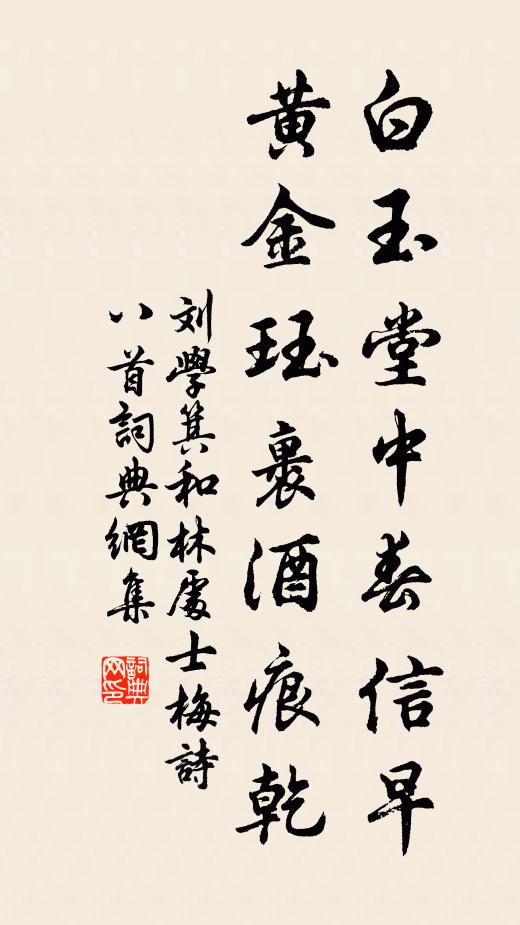 白玉堂中春信早
黃金珏裏酒痕乾
刘學箕和林處士梅詩
八首詞典網集
詞典
网印